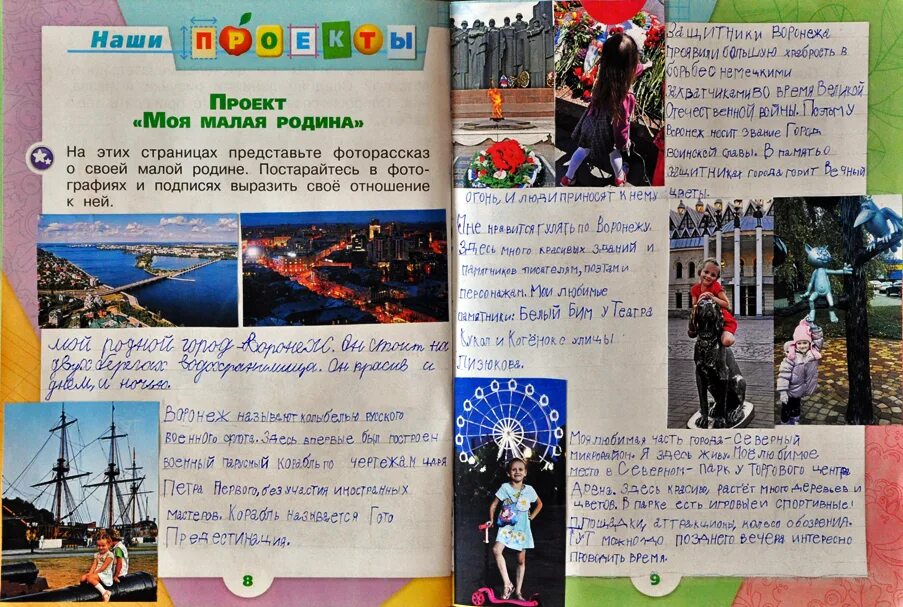 Наши ПРОЕКТЫ
ПРОЕКТ
«МОЯ МАЛАЯ РОДИНА»
На этих страницах представьте фоторассказ
о своей малой родине. Постарайтесь в фото-
графиях и подписях выразить своё отношение
к ней.
Мой родной город - Воронеж. Он стоит на
двух берегах водохранилища. Он красив и
днём, и ночью.
Воронеж называют колыбелью русского
военного флота. Здесь впервые был построен
военный парусный корабль по чертежам царя
Петра Первого, без участия иностранных
мастеров. Корабль называется Гото
Предестинация.
8
Защитники Воронежа
проявили большую храбрость в
борьбе с немецкими
захватчиками во время Великой
Отечественной войны. Поэтому
Воронеж носит звание Город
воинской славы. В память о
защитниках города горит Вечный
огонь, и люди приносят к нему
цветы.
Мне нравится гулять по Воронежу.
Здесь много красивых зданий и
памятников писателям, поэтам и
персонажам. Мои любимые
памятники: Белый Бим у Театра
Кукол и Котёнок с улицы
Лизюкова.
Моя любимая часть города - Северный
микрорайон. Я здесь живу. Моё любимое
место в Северном - парк у торгового центра
Арена. Здесь красиво, растёт много деревьев и
цветов. В парке есть игровые и спортивные
площадки, аттракционы, колесо обозрения.
Тут можно до позднего вечера интересно
проводить время.
9